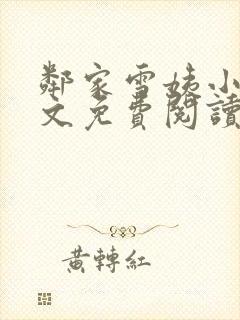 鄰家雪姨小
文免費閱讀
黃轉紅